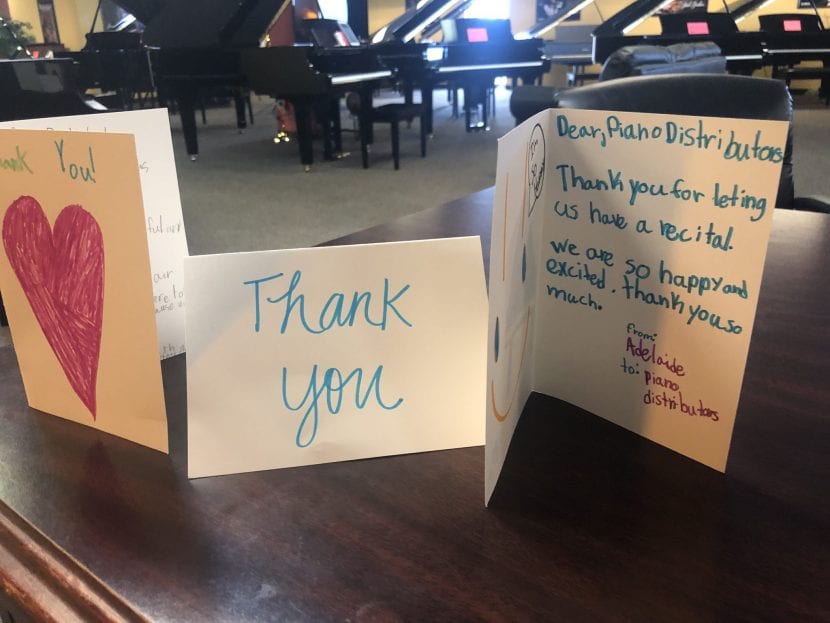 Thank You!
Thank
you
Dear, Piano Distributors
Thank you for leting
us have a recital.
we are so happy and
excited. thank you so
much.
from:
Adelaide
to: piano
distributors